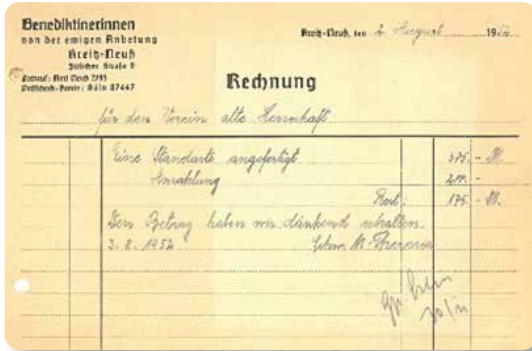 Benediktinerinnen
von der ewigen Anbetung
Kreitz-Neuß
Jülicher Straße
Kreitz-Neuß, den 2. August 1952
Postscheck-Konto: Köln 87447
Rechnung
für den Verein alte Herrschaft
Eine Standarte angefertigt 375.- M.
Anzahlung
Rest: 175.- M.
Den Betrag haben wir dankend erhalten.
3. 8. 1952 Schw. M. Theresia